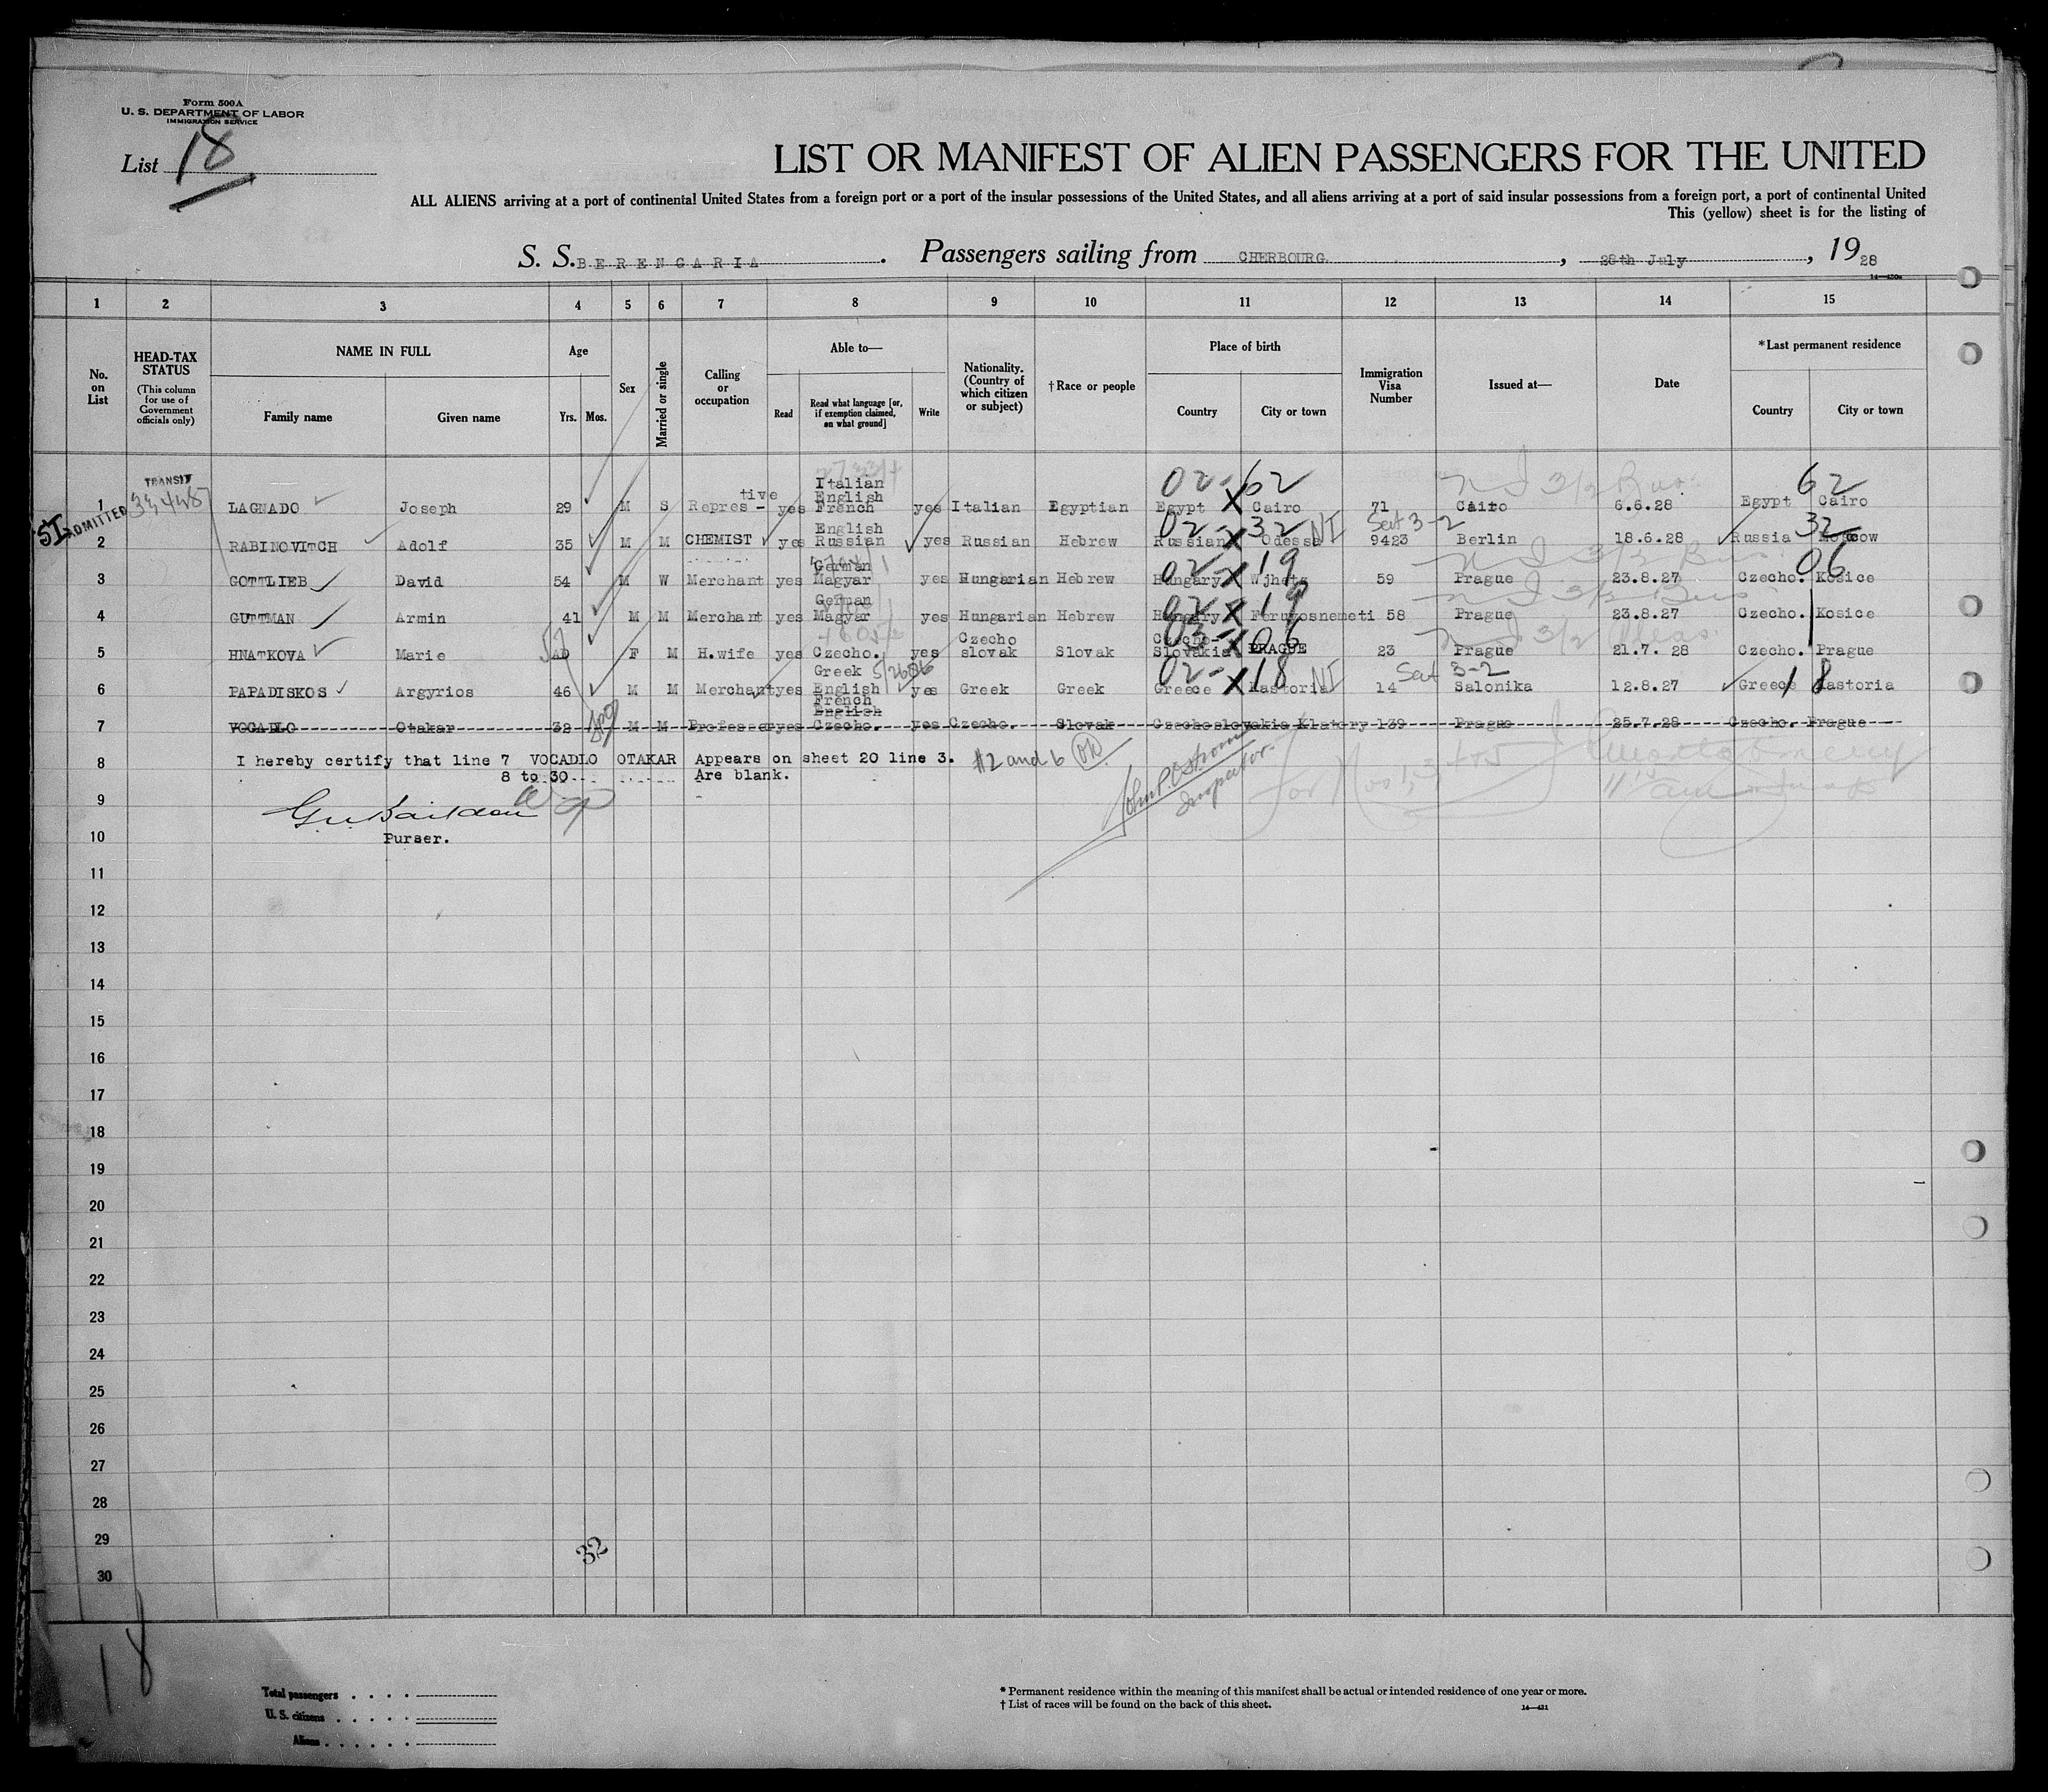 Form 500A
U. S. DEPARTMENT OF LABOR
IMMIGRATION SERVICE
List 18
LIST OR MANIFEST OF ALIEN PASSENGERS FOR THE UNITED
ALL ALIENS arriving at a port of continental United States from a foreign port or a port of the insular possessions of the United States, and all aliens arriving at a port of said insular possessions from a foreign port, a port of continental United
This (yellow) sheet is for the listing of
S. S. BERENGARIA. Passengers sailing from CHERBOURG, 28th July, 1928
14—430a
1 2 3 4 5 6 7 8 9 10 11 12 13 14 15
No. on List
HEAD-TAX STATUS (This column for use of Government officials only)
NAME IN FULL
Family name Given name
Age
Yrs. Mos.
Sex
Married or single
Calling or occupation
Able to—
Read Read what language [or, if exemption claimed, on what ground] Write
Nationality. (Country of which citizen or subject)
†Race or people
Place of birth
Country City or town
Immigration Visa Number
Issued at—
Date
*Last permanent residence
Country City or town
TRANSIT
02- 62 62
1 LAGNADO Joseph 29 M S Repres-tive yes Italian English French yes Italian Egyptian Egypt X Cairo 71 Cairo 6.6.28 Egypt Cairo
SI ADMITTED
02- 32 NI Sect 3-2 32
2 RABINOVITCH Adolf 35 M M CHEMIST yes English Russian yes Russian Hebrew Russian X Odessa 9423 Berlin 18.6.28 Russia Moscow
02- 19 06
3 GOTTLIEB David 54 M W Merchant yes German Magyar yes Hungarian Hebrew Hungary X 59 Prague 23.8.27 Czecho. Kosice
02- 19
4 GUTTMAN Armin 41 M M Merchant yes German Magyar yes Hungarian Hebrew Hungary X 58 Prague 23.8.27 Czecho. Kosice
03- 06
5 HNATKOVA Marie AD F M H.wife yes Czecho. yes Czecho slovak Slovak Czecho-Slovakia X PRAGUE 23 Prague 21.7.28 Czecho. Prague
02- 18 NI Sect 3-2 18
6 PAPADISKOS Argyrios 46 M M Merchant yes Greek English French yes Greek Greek Greece X Kastoria 14 Salonika 12.8.27 Greece Kastoria
7 VOCADLO Otakar 32 M M Professer yes English Czecho. yes Czecho. Slovak Czechoslovakia Klatovy 139 Prague 25.7.28 Czecho. Prague
8 I hereby certify that line 7 VOCADLO OTAKAR Appears on sheet 20 line 3. #2 and 6 OK
8 to 30 Are blank.
John P. Ostrom
Inspector.
9
10 Purser.
11
12
13
14
15
16
17
18
19
20
21
22
23
24
25
26
27
28
29
30
32
18
Total passengers
U. S. citizens
Aliens
* Permanent residence within the meaning of this manifest shall be actual or intended residence of one year or more.
† List of races will be found on the back of this sheet.
14—431